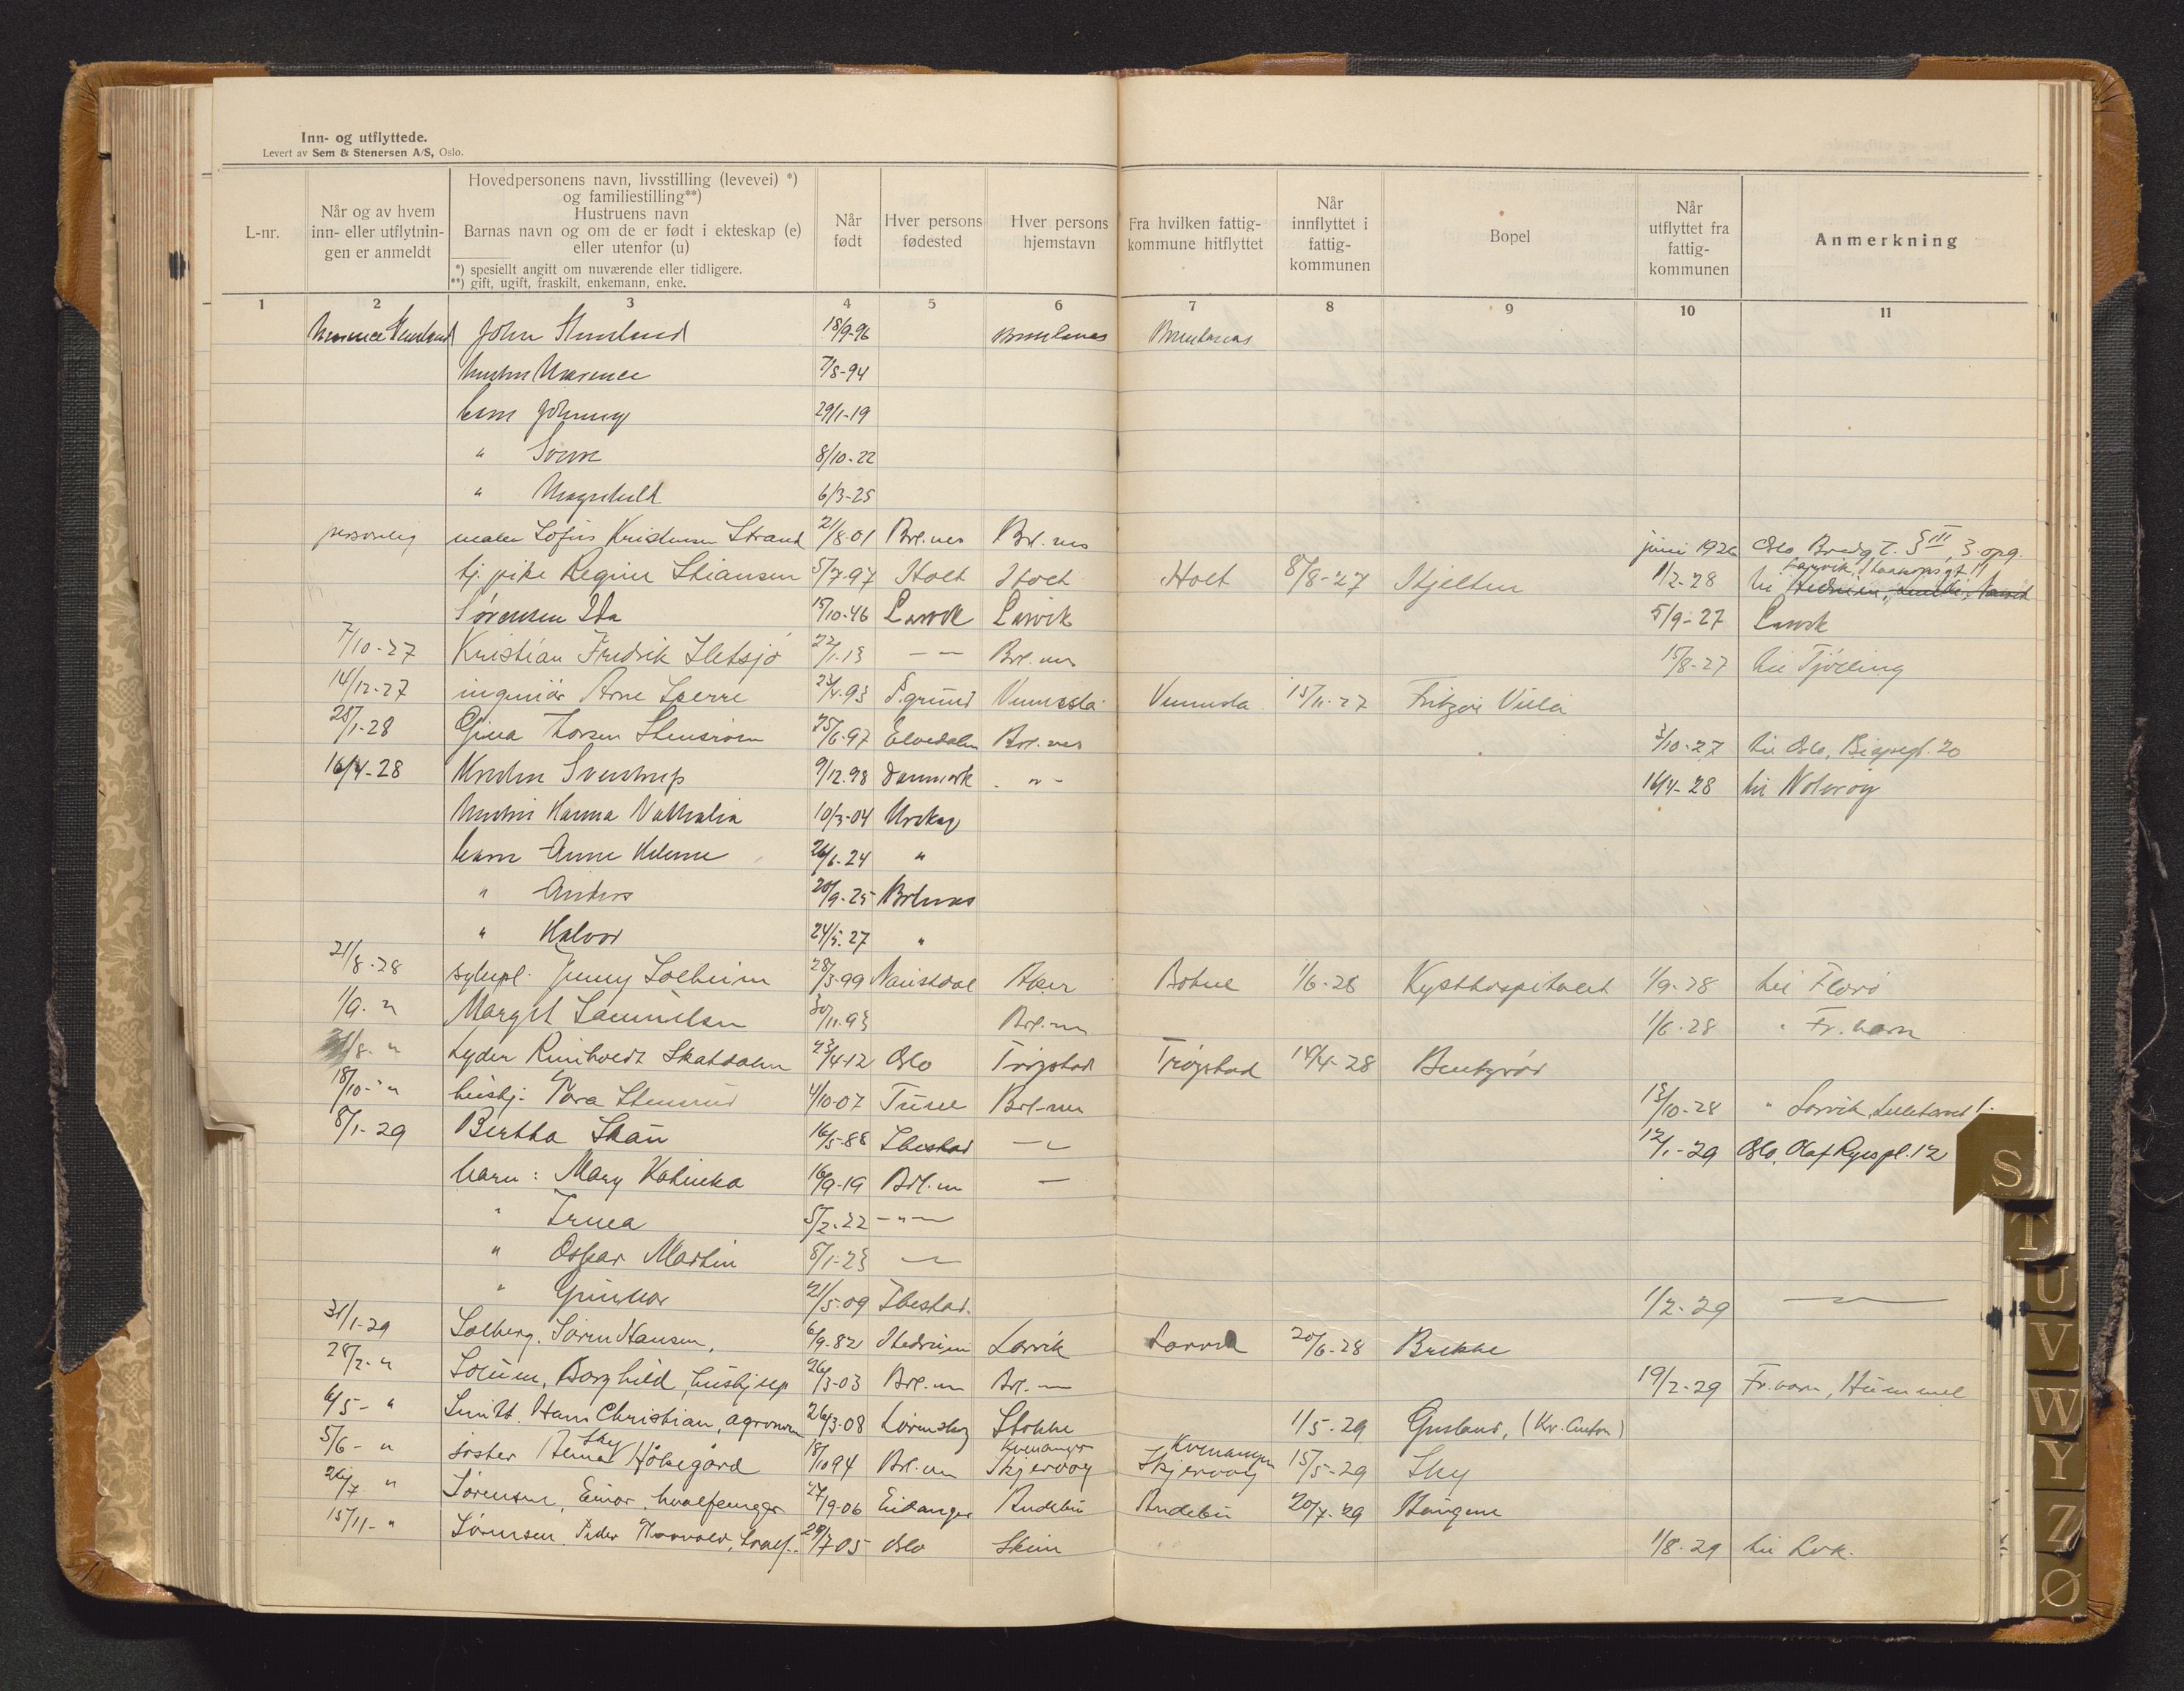 Inn- og utflyttede.
Levert av Sem & Stenersen A/S, Oslo.
L-nr.
Når og av hvem
inn- eller utflytnin-
gen er anmeldt
Hovedpersonens navn, livsstilling (levevei) *)
og familiestilling**)
Hustruens navn
Barnas navn og om de er født i ekteskap (e)
eller utenfor (u)
*) spesiellt angitt om nuværende eller tidligere.
**) gift, ugift, fraskilt, enkemann, enke.
Når
født
Hver persons
fødested
Hver persons
hjemstavn
Fra hvilken fattig-
kommune hitflyttet
Når
innflyttet i
fattig-
kommunen
Bopel
Når
utflyttet fra
fattig-
kommunen
Anmerkning
1 2 3 4 5 6 7 8 9 10 11
John 18/9-96 Brunlanes Brunlanes
7/8-94
barn Johnny 29/1-19
" 8/10-22
" Magnhild 6/3-25
personlig maler Sofus Kristensen Strand 21/8-01 Brl.nes Brl.nes juni 1926 Oslo
tj. pike Regine Stiansen 5/7-97 Holt Holt Holt 8/8-27 Hjelten 1/2-28 til
Sørensen Ida 15/10-46 Larvik Larvik 5/9-27 Larvik
7/10-27 Kristian Fredrik Sletsjø 22/1-13 — — Brl.nes 15/8-27 til Tjølling
14/12-27 ingeniør Arne Sverre 23/4-93 P.grund Vennesla Vennesla 15/11-27 Fritzøe Villa
28/1-28 Gina Thorsen 25/6-97 Elvedalen Brl.nes 3/10-27 til Oslo, Bispegt. 20
16/4-28 Svenstrup 9/12-98 Danmark - " - 16/4-28 til Nøterøy
hustru Hanna Nathalia 10/3-04 Urskog
barn Anne Helene 26/6-24 "
" Anders 20/9-25 Brlnes
" Halvor 24/5-27 "
21/8-28 sykepl. Jenny Solheim 28/3-99 Naustdal Aker Botne 1/6-28 Kysthospitalet 1/9-28 til Florø
1/9- " Margit Samuelsen 30/11-93 Brl.nes 1/6-28 " Fr.varn
/8- " Lyder Reinholdt Skatdalen 23/4-12 Oslo Trøgstad Trøgstad 14/4-28 Bentsrød
18/10- " hushj. Tora Stensrud 4/10-07 Tune Brl.nes 13/10-28 " Larvik, Lilletorvet 1.
8/1-29 Bertha Skau 16/5-88 Ibestad — " 12/1-29 Oslo, Olaf Ryespl. 12
barn: Mary Katinka 16/9-19 Brl.nes —
" Irma 5/2-22 — " —
" Oskar Martin 8/1-23 —
" Gunnar 21/5-09 Ibestad. 1/2-29 —
31/1-29 Solberg, Søren Hansen, 6/9-82 Hedrum Larvik Larvik 20/6-28 Brekke
28/2- " Solum, Borghild, hushjelp 26/3-03 Brl.nes Brl.nes 19/2-29 Fr.varn, Hummel
6/5- " Smitt, Hans Christian, agronom 26/3-08 Lørenskog Stokke 1/5-29 Gusland, (Kr. Anton)
5/6- " søster Sky Håkegård 18/10 94 Brl.nes Kvenangen Skjervøy Kvenangen Skjervøy 15/5-29 Sky
26/7 " Sørensen, Einar, hvalfanger 27/9-06 Eidanger Andebu Andebu 20/7-29 Haugene
15/11- " Sørensen, Peder Thorvald, 29/7-05 Oslo Skien 1/8-29 til Lvk.
S
T
U
V
W
Y
Z
Ø